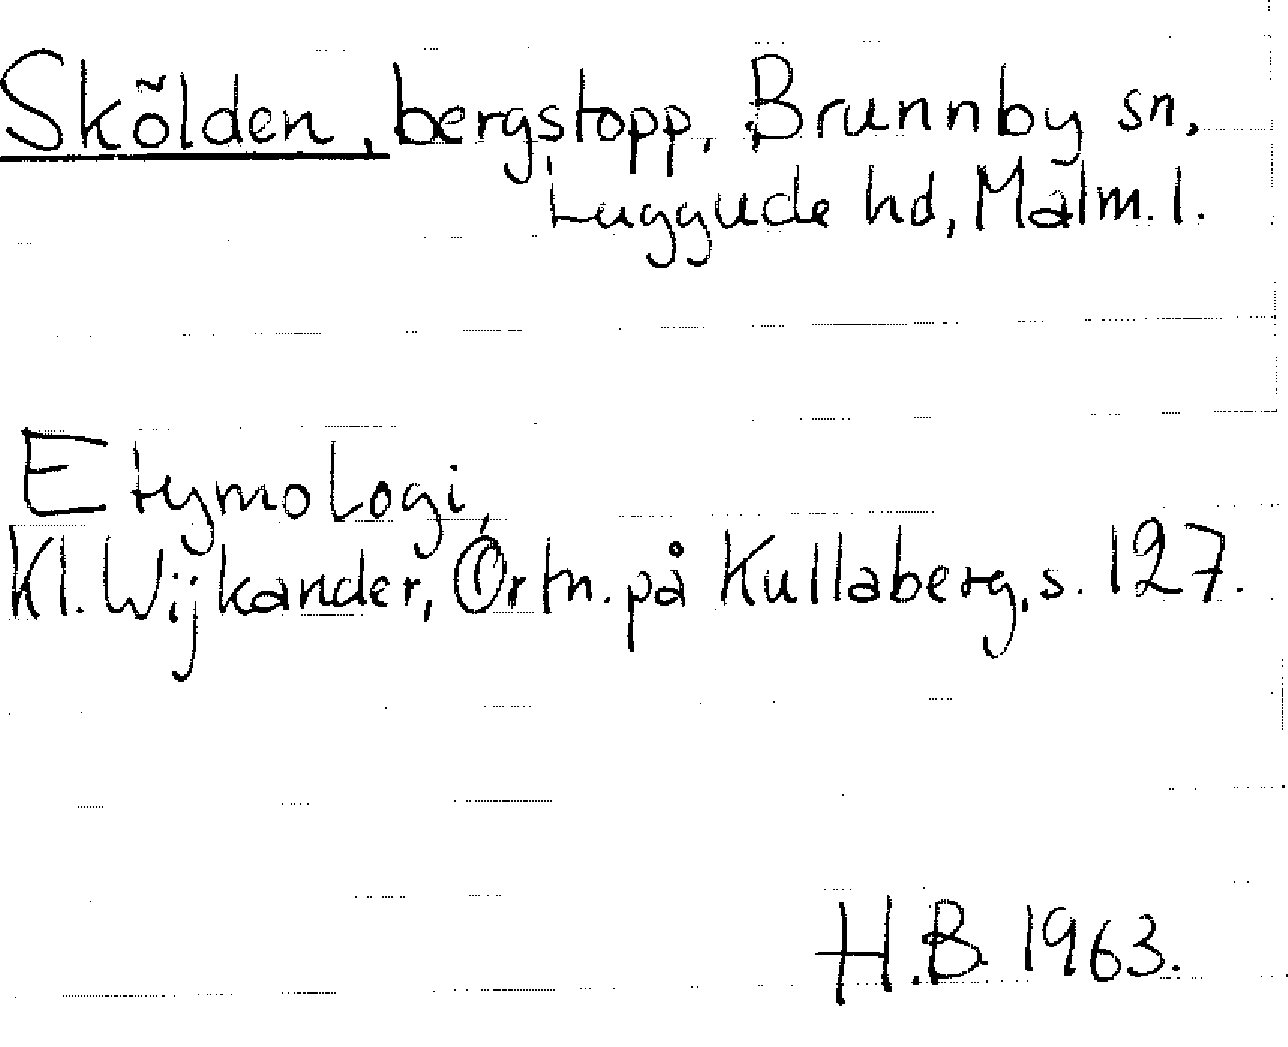 Skölden, bergstopp, Brunnby sn,
Luggude hd, Malm. l.
Etymologi,
Kl. Wijkander, Ortn. på Kullaberg, s. 127.
H.B. 1963.